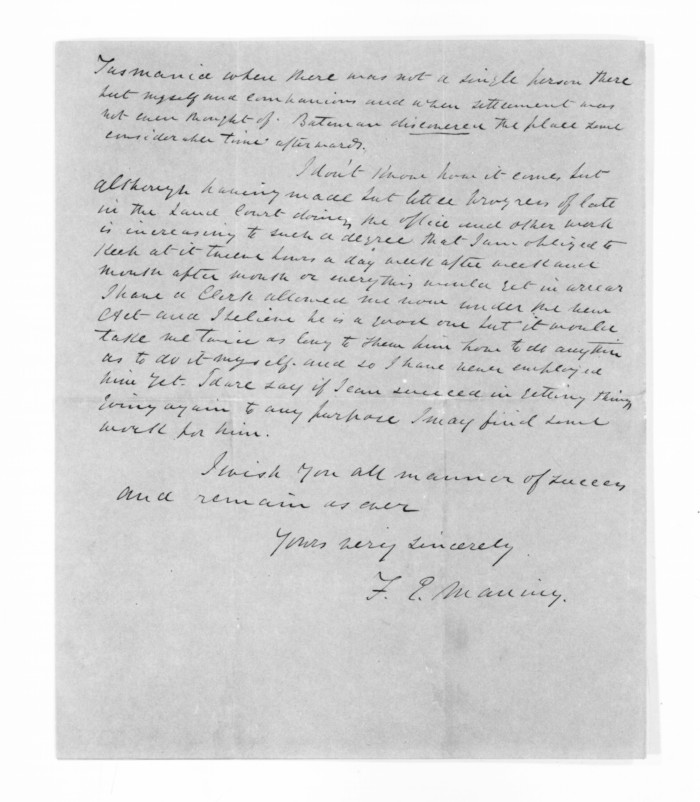 Tasmania when there was not a single person there
but myself and companions and when settlement was
not even thought of. Bateman discovered the place some
considerable time afterwards.
I don't know how it comes but
although having made but little progress of late
in the Land Court doings the office and other work
is increasing to such a degree that I am obliged to
keep at it twelve hours a day week after week and
month after month or everything would get in arrear
I have a Clerk allowed me now under the new
Act and I believe he is a good one but it would
take me twice as long to show him how to do anything
as to do it myself and so I have never employed
him yet. I dare say if I can succeed in getting things
going again to any purpose I may find some
work for him.
I wish you all manner of success
and remain as ever
Yours very sincerely
F. E. Maning.